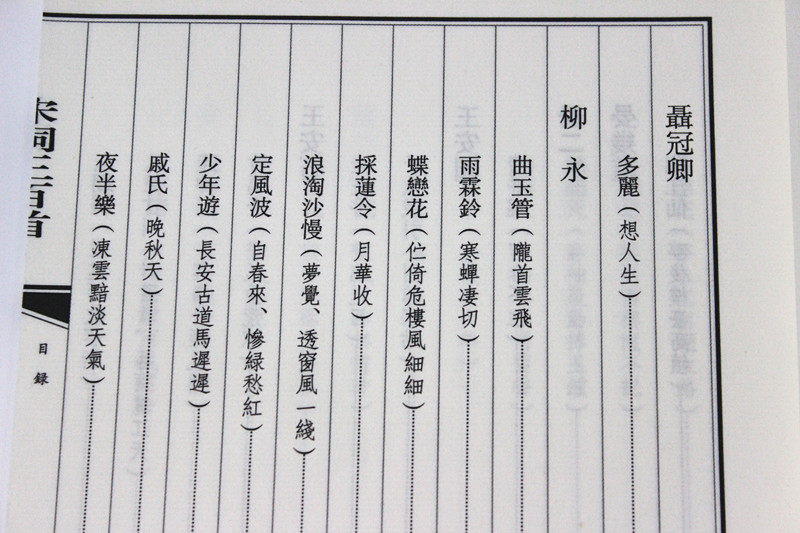 聶冠卿
多麗（想人生）
柳永
曲玉管（隴首雲飛）
雨霖鈴（寒蟬凄切）
蝶戀花（伫倚危樓風細細）
採蓮令（月華收）
浪淘沙慢（夢覺、透窗風一綫）
定風波（自春來、慘緑愁紅）
少年遊（長安古道馬遲遲）
戚氏（晚秋天）
夜半樂（凍雲黯淡天氣）
宋詞三百首
目録